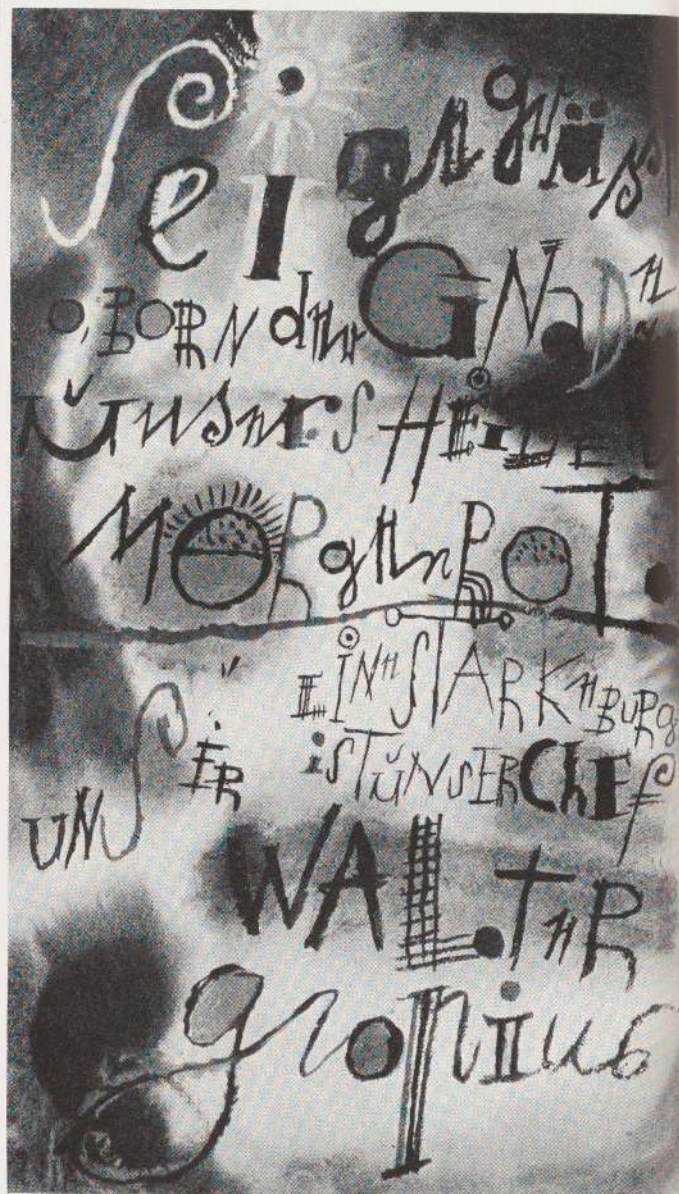 Sei gegrüßt
O, BORN der GNADE
unseres HEILES
MORgenROT.
EINE STARKE BURG
UNS ER iST UNSER CHEF
WALTER
gropius